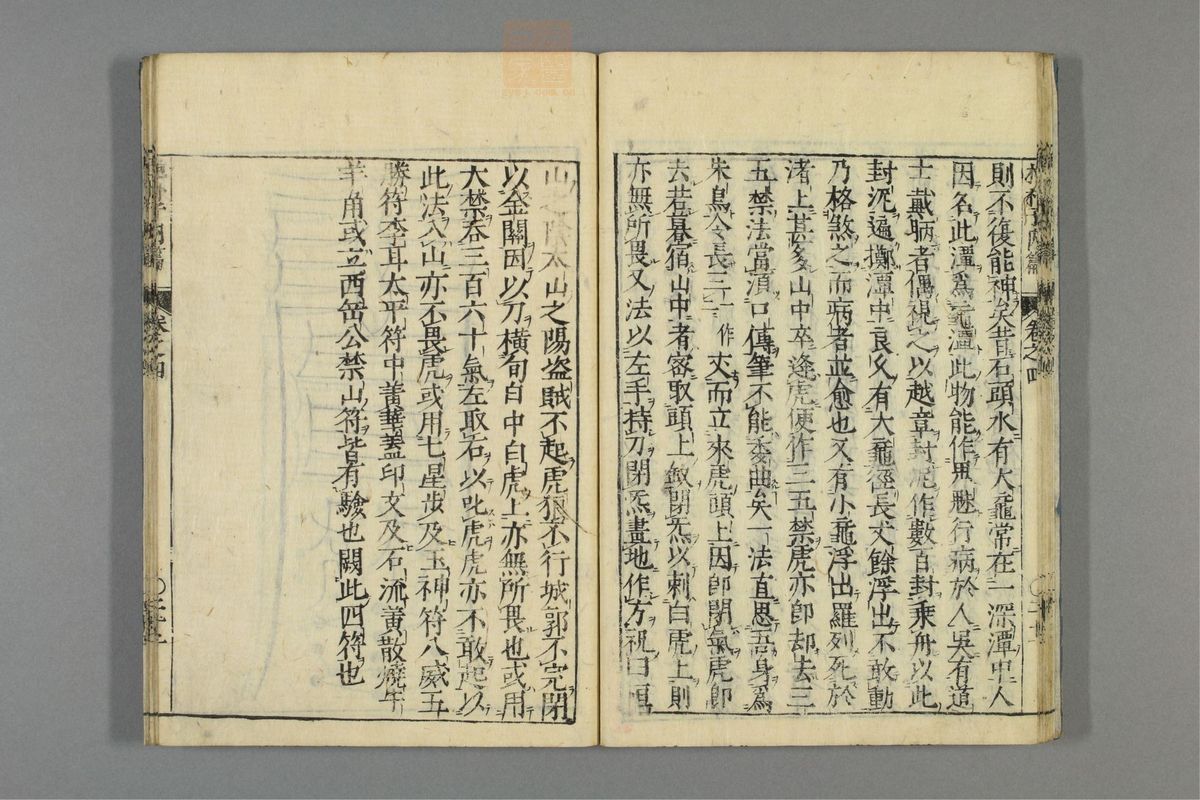 則不復能神矣昔石頭水有大龜常在一深潭中人
因名此潭爲龜潭此物能作鬼魅行病於人吳有道
士戴昞者偶視之以越章封泥作數百封乘舟以此
封泥遍擲潭中良久有大龜徑長丈餘浮出不敢動
乃格煞之而病者並愈也又有小龜浮出羅列死於
渚上甚多山中卒逢虎便作三五禁虎亦即却去三
五禁法當須口傳筆不能委曲矣一法直思吾身爲
朱鳥令長三一作丈而立來虎頭上因即閉氣虎即
去若暮宿山中者密取頭上釵閉炁以刺白虎上則
亦無所畏又法以左手持刀閉炁畫地作方祝曰恒
山之陰太山之陽盜賊不起虎狼不行城郭不完閉
以金關因以刀橫旬日中白虎上亦無所畏也或用
大禁吞三百六十氣左取右以叱虎虎亦不敢起以
此法入山亦不畏虎或用七星步及玉神符八威五
勝符李耳太平符中黄華蓋印文及石流黄散燒牛
羊角或立西岳公禁山符皆有驗也闕此四符也
卷之四
卷之四